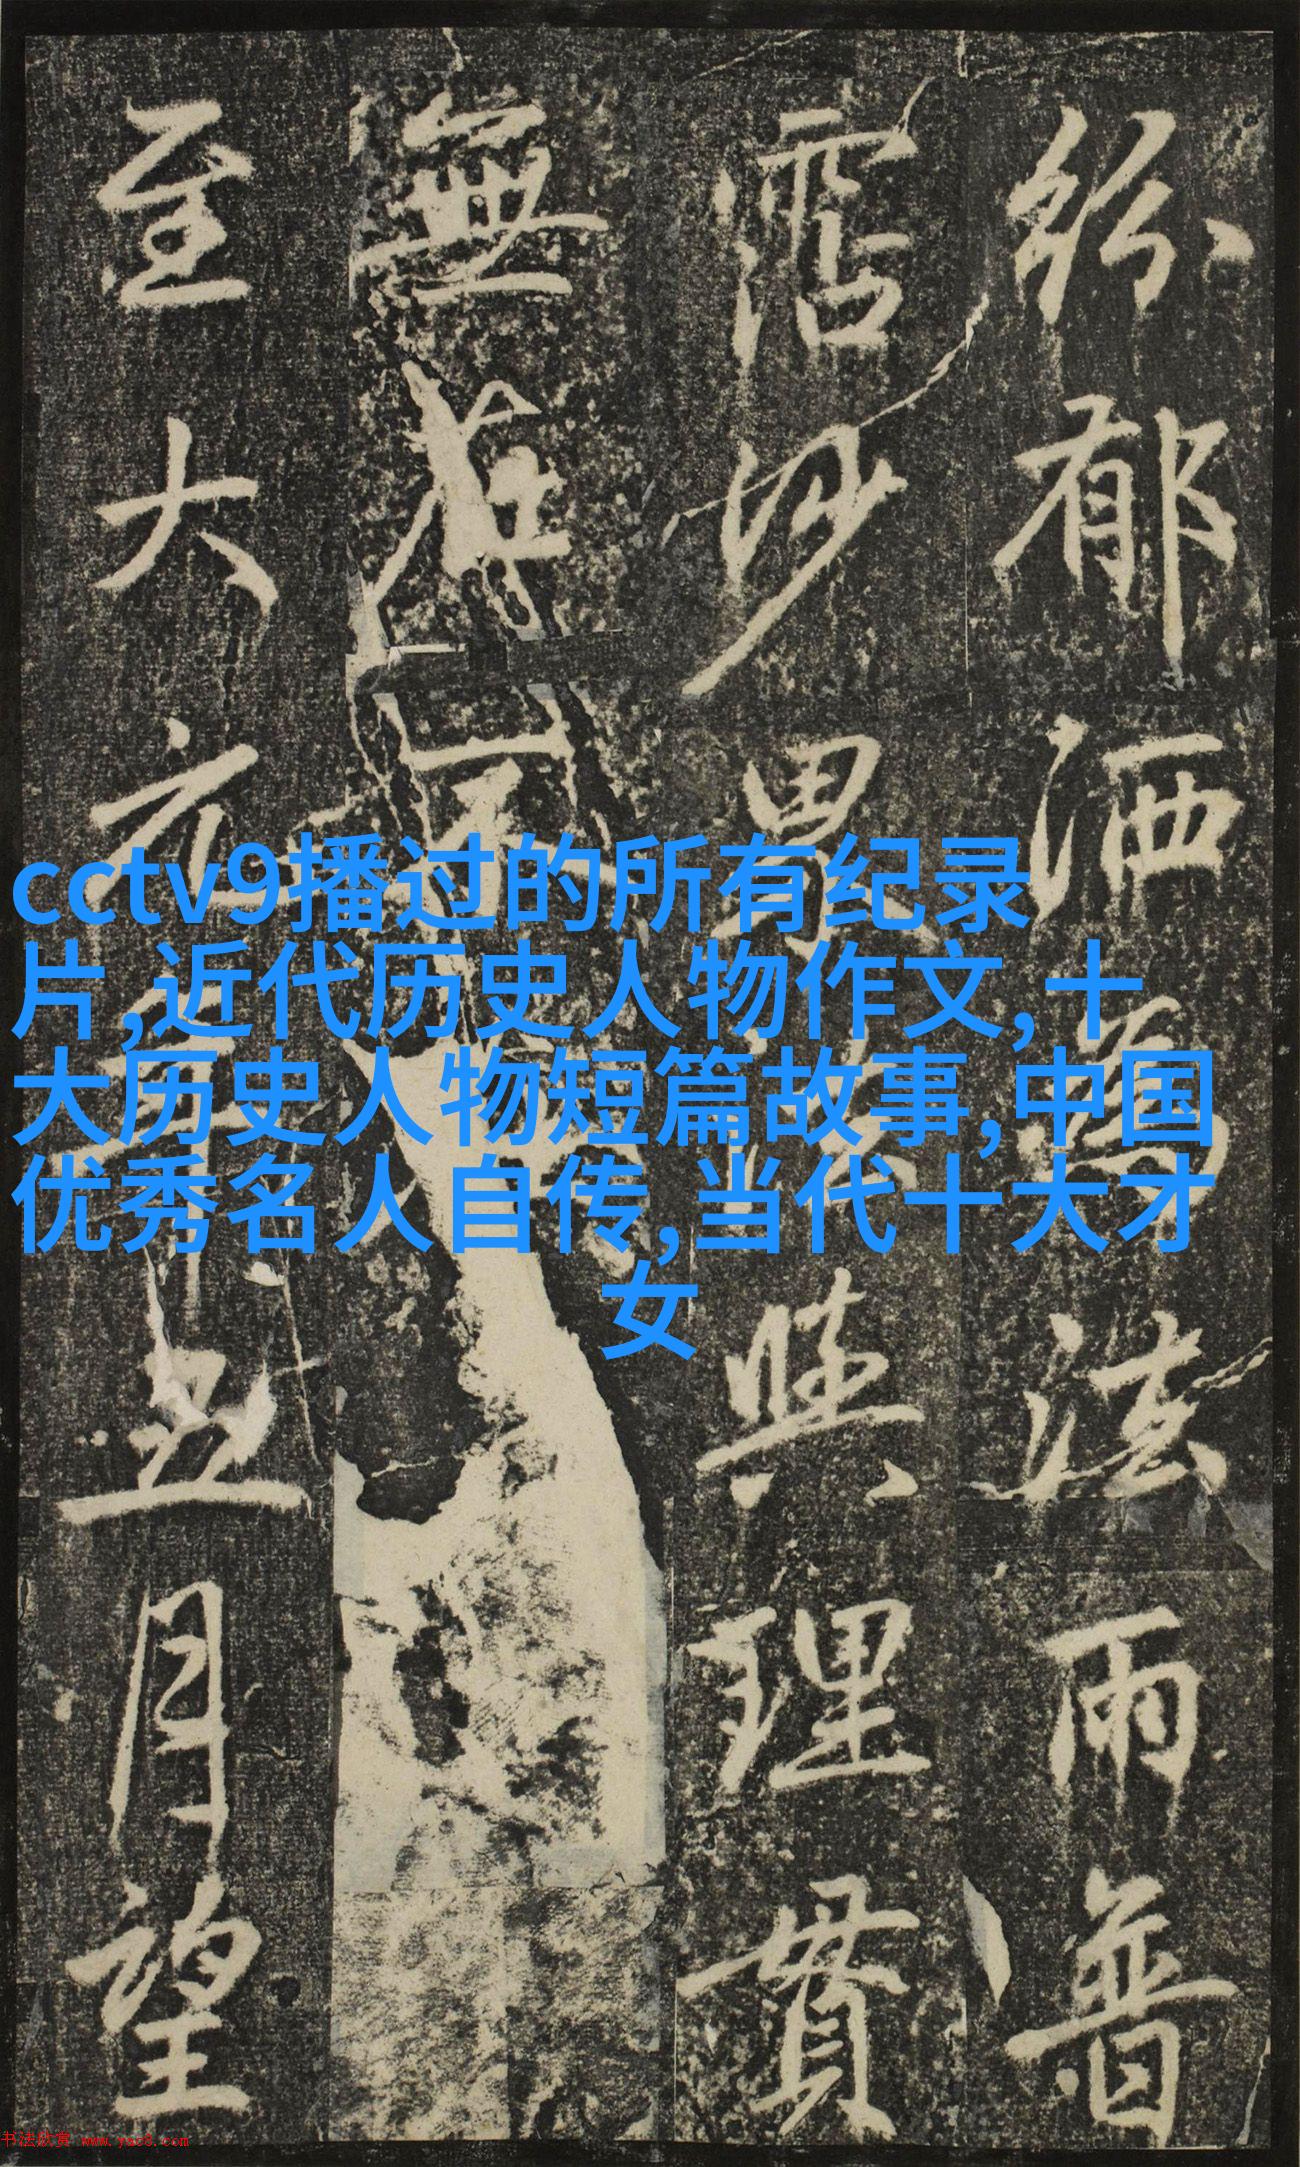 紛郁洒為法雨普
霑沙界與理貫
無
至大元年五月望
cctv9播过的所有纪录
片,近代历史人物作文,十
大历史人物短篇故事,中国
优秀名人自传,当代十大才
女
书法欣赏 www.yac8.com